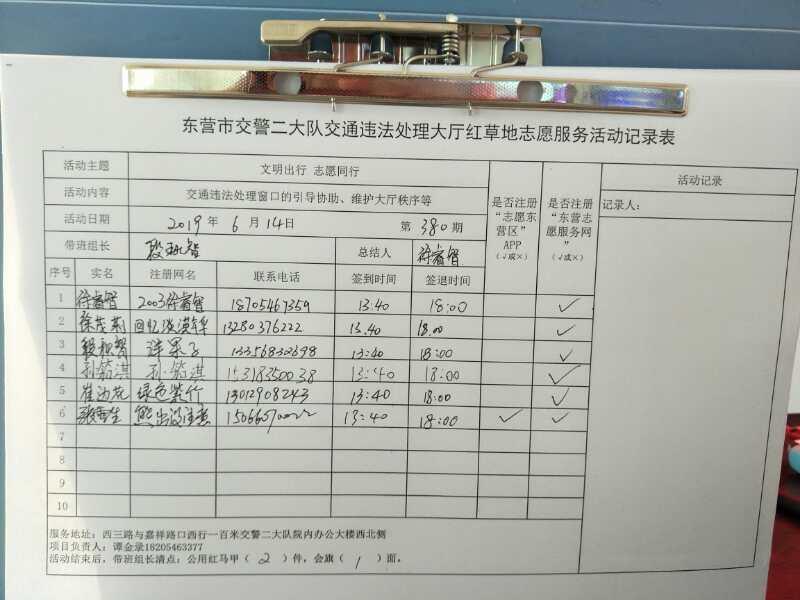 东营市交警二大队交通违法处理大厅红草地志愿服务活动记录表
活动主题 文明出行 志愿同行
活动内容 交通违法处理窗口的引导协助、维护大厅秩序等
活动日期 2019 年 6 月 14 日 第 380 期
是否注册“志愿东营区”APP(√或×) 是否注册“东营志愿服务网”(√或×)
活动记录
记录人:
带班组长 总结人 徐睿智
序号 实名 注册网名 联系电话 签到时间 签退时间
1 徐睿智 2003徐睿智 18705467359 13:40 18:00 ✓
2 徐茂莉 13280376222 13.40 18.00 ✓
3 洋果子 13356832398 13:40 18:00 ✓
4 孙筠淇 孙筠淇 15318350038 13:40 18:00 ✓
5 绿色紫竹 13012908243 13:40 18:00 ✓
6 熊出没注意 15066570022 13:40 18:00 ✓ ✓
7
8
9
10
服务地址:西三路与嘉祥路口西行一百米交警二大队院内办公大楼西北侧
项目负责人:谭金录18205463377
活动结束后,带班组长清点:公用红马甲( 2 )件,会旗( 1 )面,